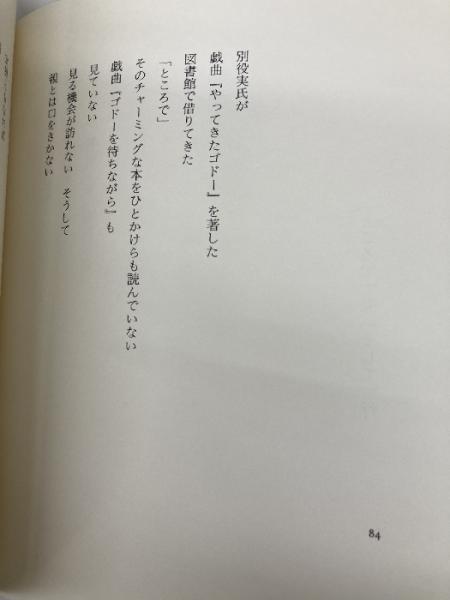 別役実氏が
戯曲『やってきたゴドー』を著した
図書館で借りてきた
「ところで」
そのチャーミングな本をひとかけらも読んでいない
戯曲『ゴドーを待ちながら』も
見ていない
見る機会が訪れない　そうして
親とは口をきかない
84